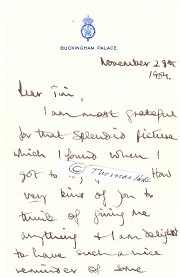 BUCKINGHAM PALACE
November 28th
1954.
Dear Tim,
I am most grateful
for that splendid picture
which I found when I
got to How
very kind of you to
think of giving me
anything & I am delighted
to have such a nice
reminder of some